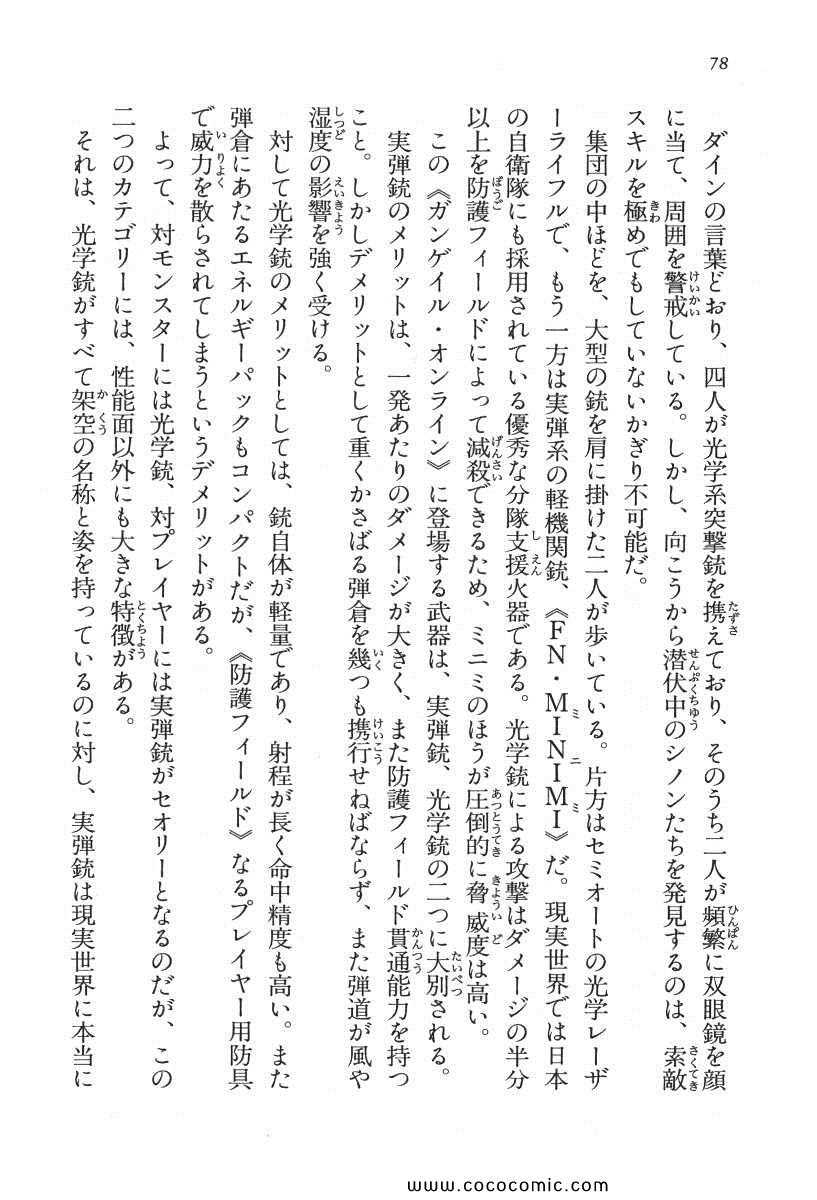 78
ダインの言葉どおり、四人が光学系突撃銃を携えており、そのうち二人が頻繁に双眼鏡を顔
に当て、周囲を警戒している。しかし、向こうから潜伏中のシノンたちを発見するのは、索敵
スキルを極めでもしていないかぎり不可能だ。
集団の中ほどを、大型の銃を肩に掛けた二人が歩いている。片方はセミオートの光学レーザ
ーライフルで、もう一方は実弾系の軽機関銃、《FN・MINIMI》だ。現実世界では日本
の自衛隊にも採用されている優秀な分隊支援火器である。光学銃による攻撃はダメージの半分
以上を防護フィールドによって減殺できるため、ミニミのほうが圧倒的に脅威度は高い。
この《ガンゲイル・オンライン》に登場する武器は、実弾銃、光学銃の二つに大別される。
実弾銃のメリットは、一発あたりのダメージが大きく、また防護フィールド貫通能力を持つ
こと。しかしデメリットとして重くかさばる弾倉を幾つも携行せねばならず、また弾道が風や
湿度の影響を強く受ける。
対して光学銃のメリットとしては、銃自体が軽量であり、射程が長く命中精度も高い。また
弾倉にあたるエネルギーパックもコンパクトだが、《防護フィールド》なるプレイヤー用防具
で威力を散らされてしまうというデメリットがある。
よって、対モンスターには光学銃、対プレイヤーには実弾銃がセオリーとなるのだが、この
二つのカテゴリーには、性能面以外にも大きな特徴がある。
それは、光学銃がすべて架空の名称と姿を持っているのに対し、実弾銃は現実世界に本当に
www.cococomic.com